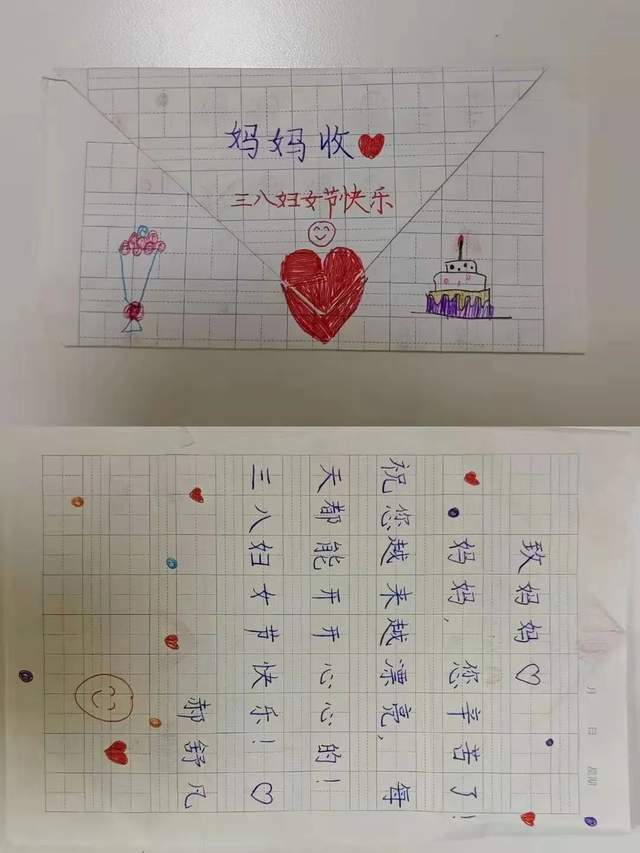 妈妈收
三八妇女节快乐
月 日 星期
致妈妈♡
妈妈,您辛苦了!
祝您越来越漂亮,每
天都能开开心心的!
三八妇女节快乐!♡
郝舒凡